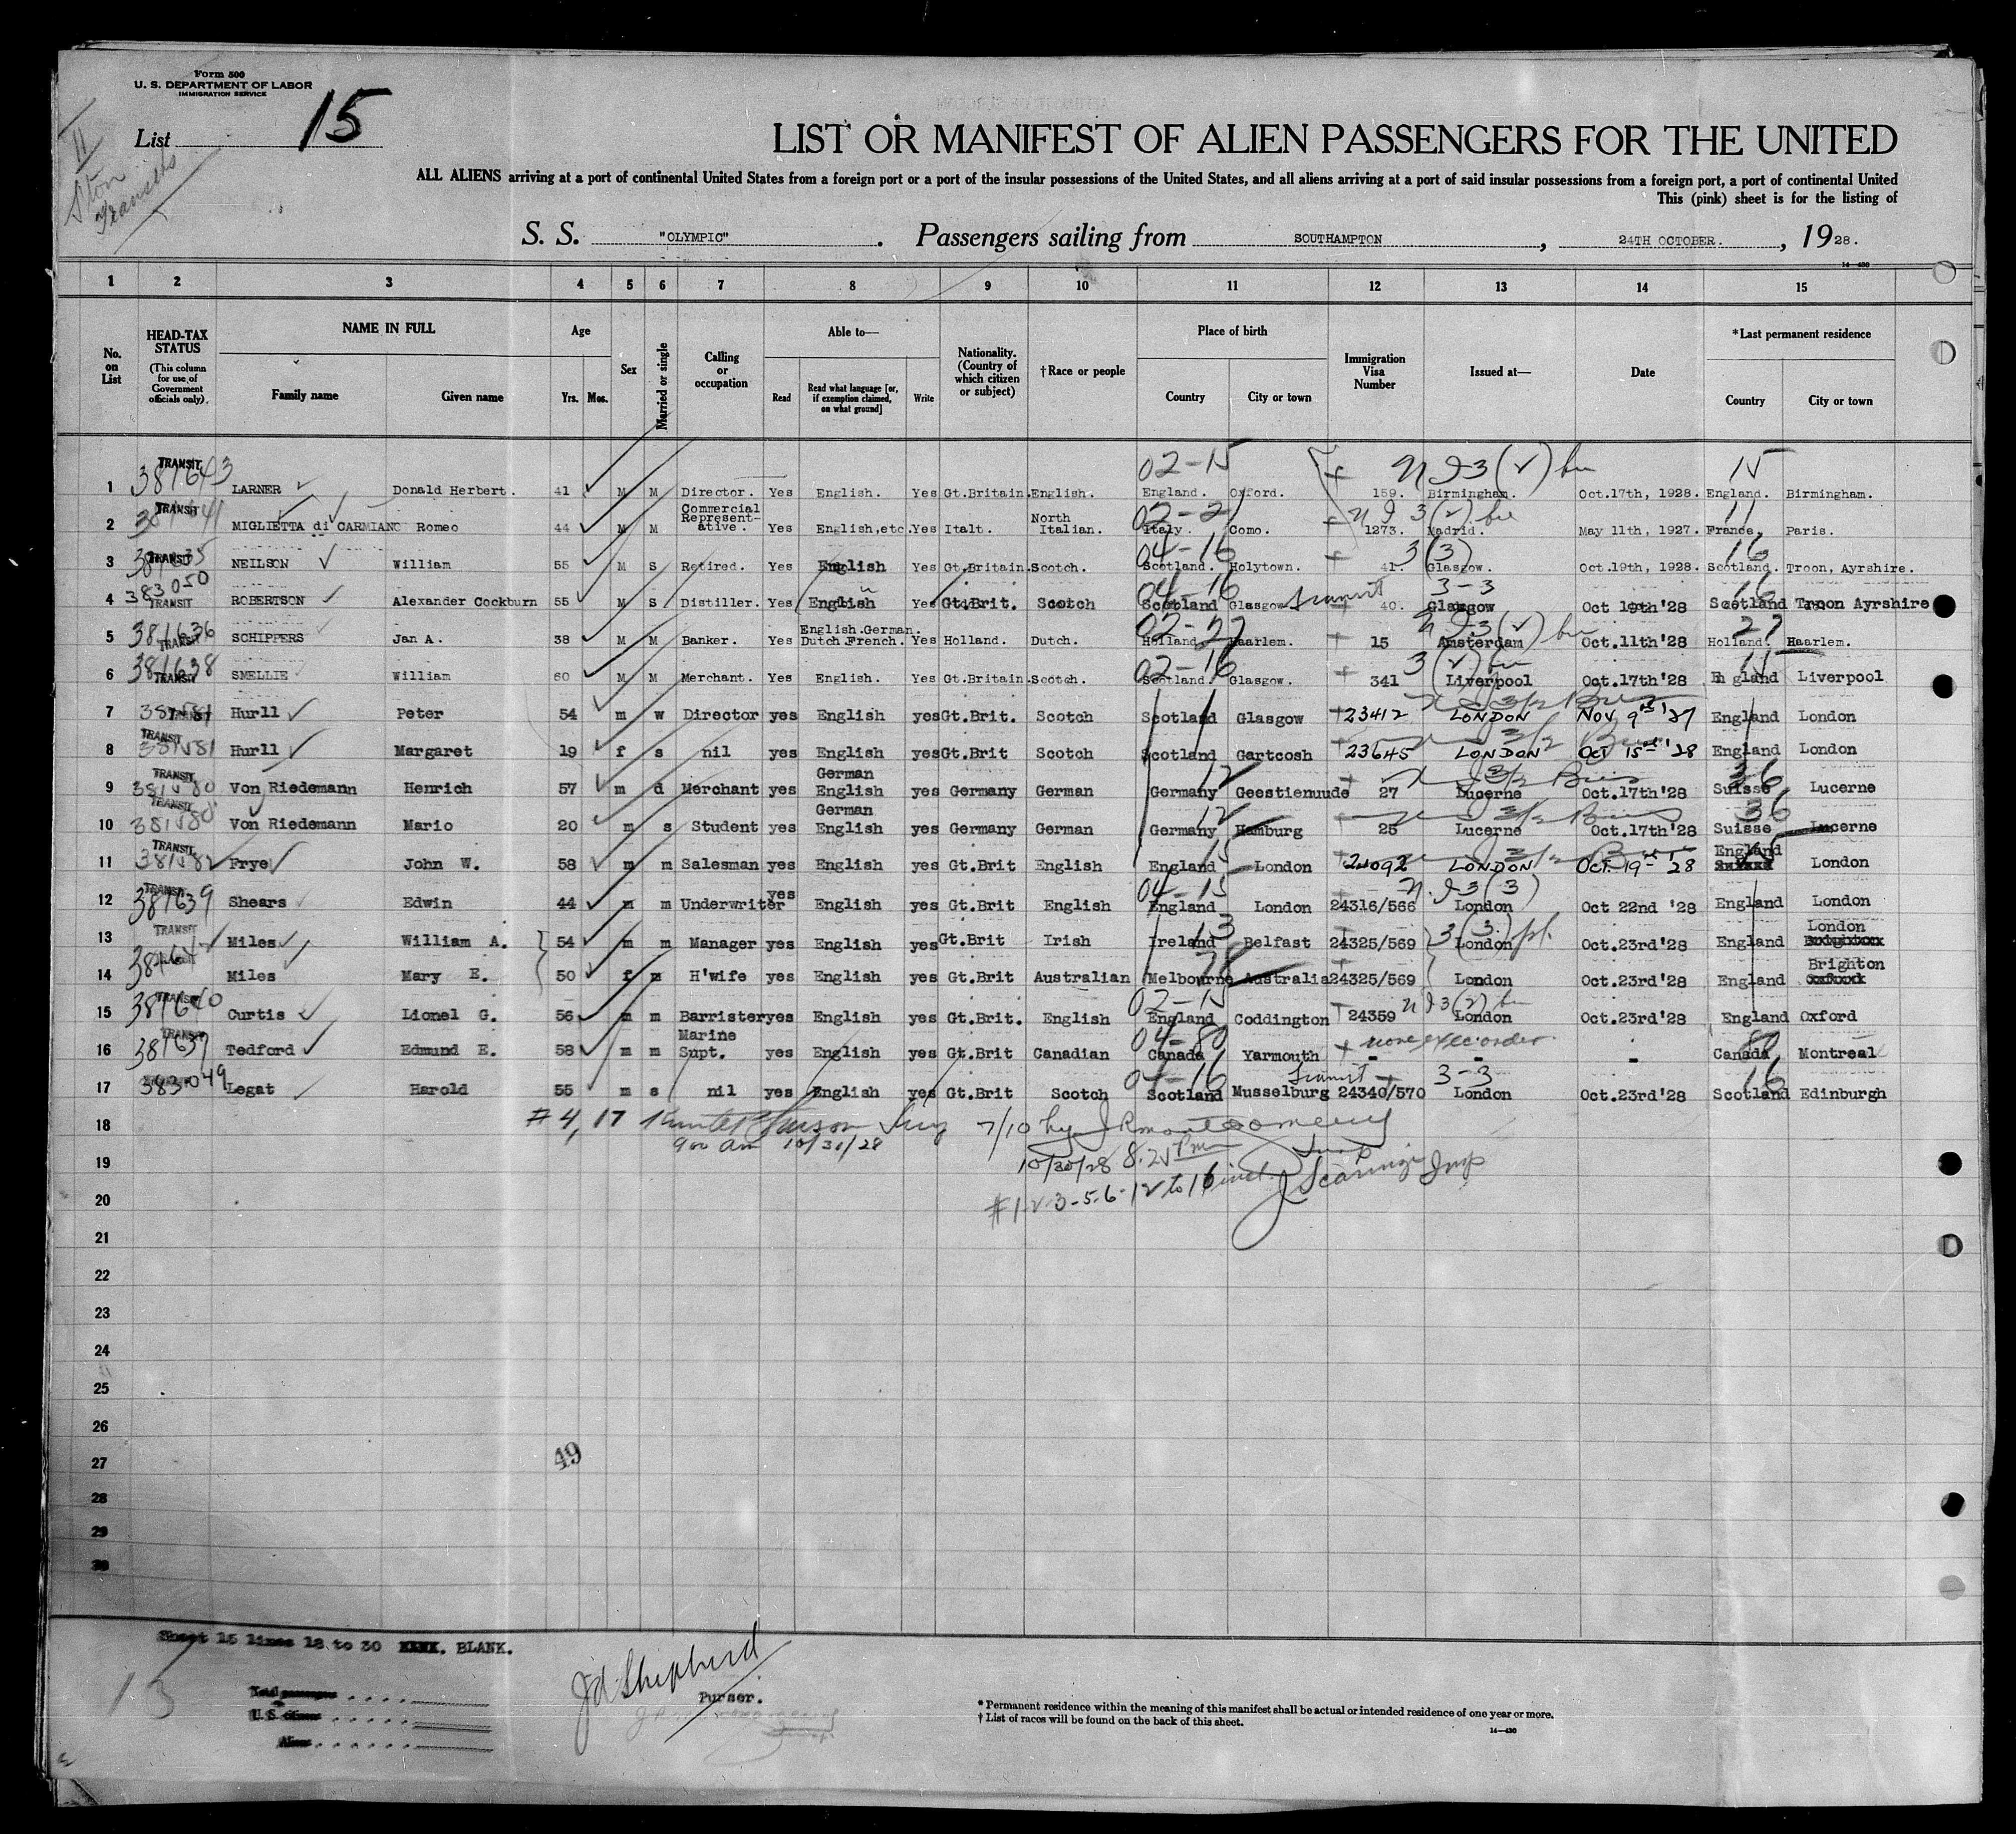 Form 500
U. S. DEPARTMENT OF LABOR
IMMIGRATION SERVICE
List 15
LIST OR MANIFEST OF ALIEN PASSENGERS FOR THE UNITED
ALL ALIENS arriving at a port of continental United States from a foreign port or a port of the insular possessions of the United States, and all aliens arriving at a port of said insular possessions from a foreign port, a port of continental United
This (pink) sheet is for the listing of
S. S. "OLYMPIC". Passengers sailing from SOUTHAMPTON, 24TH OCTOBER., 1928.
14—430
1 2 3 4 5 6 7 8 9 10 11 12 13 14 15
No. on List
HEAD-TAX STATUS (This column for use of Government officials only).
NAME IN FULL
Family name Given name
Age Yrs. Mos.
Sex
Married or single
Calling or occupation
Able to—
Read Read what language [or, if exemption claimed, on what ground] Write
Nationality. (Country of which citizen or subject)
†Race or people
Place of birth
Country City or town
Immigration Visa Number
Issued at—
Date
*Last permanent residence
Country City or town
1 TRANSIT 381643 LARNER Donald Herbert. 41 M M Director. Yes English. Yes Gt.Britain. English. 02-15 England. Oxford. 159. Birmingham. Oct.17th, 1928. England. Birmingham. 15
2 TRANSIT MIGLIETTA di CARMIANO Romeo 44 M M Commercial Represent-ative. Yes English,etc. Yes Italt. North Italian. 02-21 Italy. Como. 1273. Madrid. May 11th, 1927. France, Paris. 11
3 TRANSIT NEILSON William 55 M S Retired. Yes English Yes Gt.Britain. Scotch. 04-16 Scotland. Holytown. 41. 3(3) Glasgow. Oct.19th, 1928. Scotland. Troon, Ayrshire. 16
4 383050 TRANSIT ROBERTSON Alexander Cockburn 55 M S Distiller. Yes English Yes Gt.Brit. Scotch 04-16 Scotland Glasgow Transit 40. 3-3 Glasgow Oct 19th '28 Scotland Troon Ayrshire 16
5 381636 TRANSIT SCHIPPERS Jan A. 38 M M Banker. Yes English.German. Dutch.French. Yes Holland. Dutch. 02-27 Holland. Haarlem. 15 Amsterdam Oct.11th'28 Holland. Haarlem. 27
6 381638 TRANSIT SMELLIE William 60 M M Merchant. Yes English. Yes Gt.Britain. Scotch. 02-16 Scotland. Glasgow. 341 Liverpool Oct.17th'28 England Liverpool 15
7 TRANSIT Hurll Peter 54 m w Director yes English yes Gt.Brit. Scotch Scotland Glasgow 23412 LONDON NOV 9th '27 England London
8 TRANSIT Hurll Margaret 19 f s nil yes English yes Gt.Brit Scotch Scotland Gartcosh 23645 LONDON OCT 15th '28 England London
9 TRANSIT Von Riedemann Henrich 57 m d Merchant yes German English yes Germany German Germany Geestiemude 27 Lucerne Oct.17th'28 Suisse Lucerne 36
10 TRANSIT Von Riedemann Mario 20 m s Student yes German English yes Germany German Germany Hamburg 25 Lucerne Oct.17th'28 Suisse Lucerne 36
11 TRANSIT Frye John W. 58 m m Salesman yes English yes Gt.Brit English England London LONDON OCT. 19th '28 England London
12 TRANSIT 381639 Shears Edwin 44 m m Underwriter yes English yes Gt.Brit English 04-15 England London 24316/566 London Oct 22nd '28 England London
13 TRANSIT Miles William A. 54 m m Manager yes English yes Gt.Brit Irish Ireland Belfast 24325/569 London Oct.23rd'28 England London
14 Miles Mary E. 50 f m H'wife yes English yes Gt.Brit Australian Melbourne Australia 24325/569 London Oct.23rd'28 England Brighton
15 TRANSIT 381640 Curtis Lionel G. 56 m m Barrister yes English yes Gt.Brit. English 02-15 England Coddington 24359 London Oct.23rd'28 England Oxford
16 TRANSIT 381637 Tedford Edmund E. 58 m m Marine Supt. yes English yes Gt.Brit Canadian 04-80 Canada Yarmouth - none exec order - - Canada Montreal 80
17 383049 Legat Harold 55 m s nil yes English yes Gt.Brit Scotch 04-16 Scotland Musselburg Transit 24340/570 3-3 London Oct.23rd'28 Scotland Edinburgh 16
18 # 4, 17 7/10 by J R Montgomery
900 am 10/31/28
19 10/30/28 8.25 Pm Insp
20 #1-2-3-5-6-12 to 16 incl. J Scaringi Insp
21
22
23
24
25
26
27 49
28
29
30
Sheet 15 lines 18 to 30 BLANK.
13
Total passengers
U. S. citizens
Aliens
Jd Shepherd
Purser.
* Permanent residence within the meaning of this manifest shall be actual or intended residence of one year or more.
† List of races will be found on the back of this sheet.
14—430